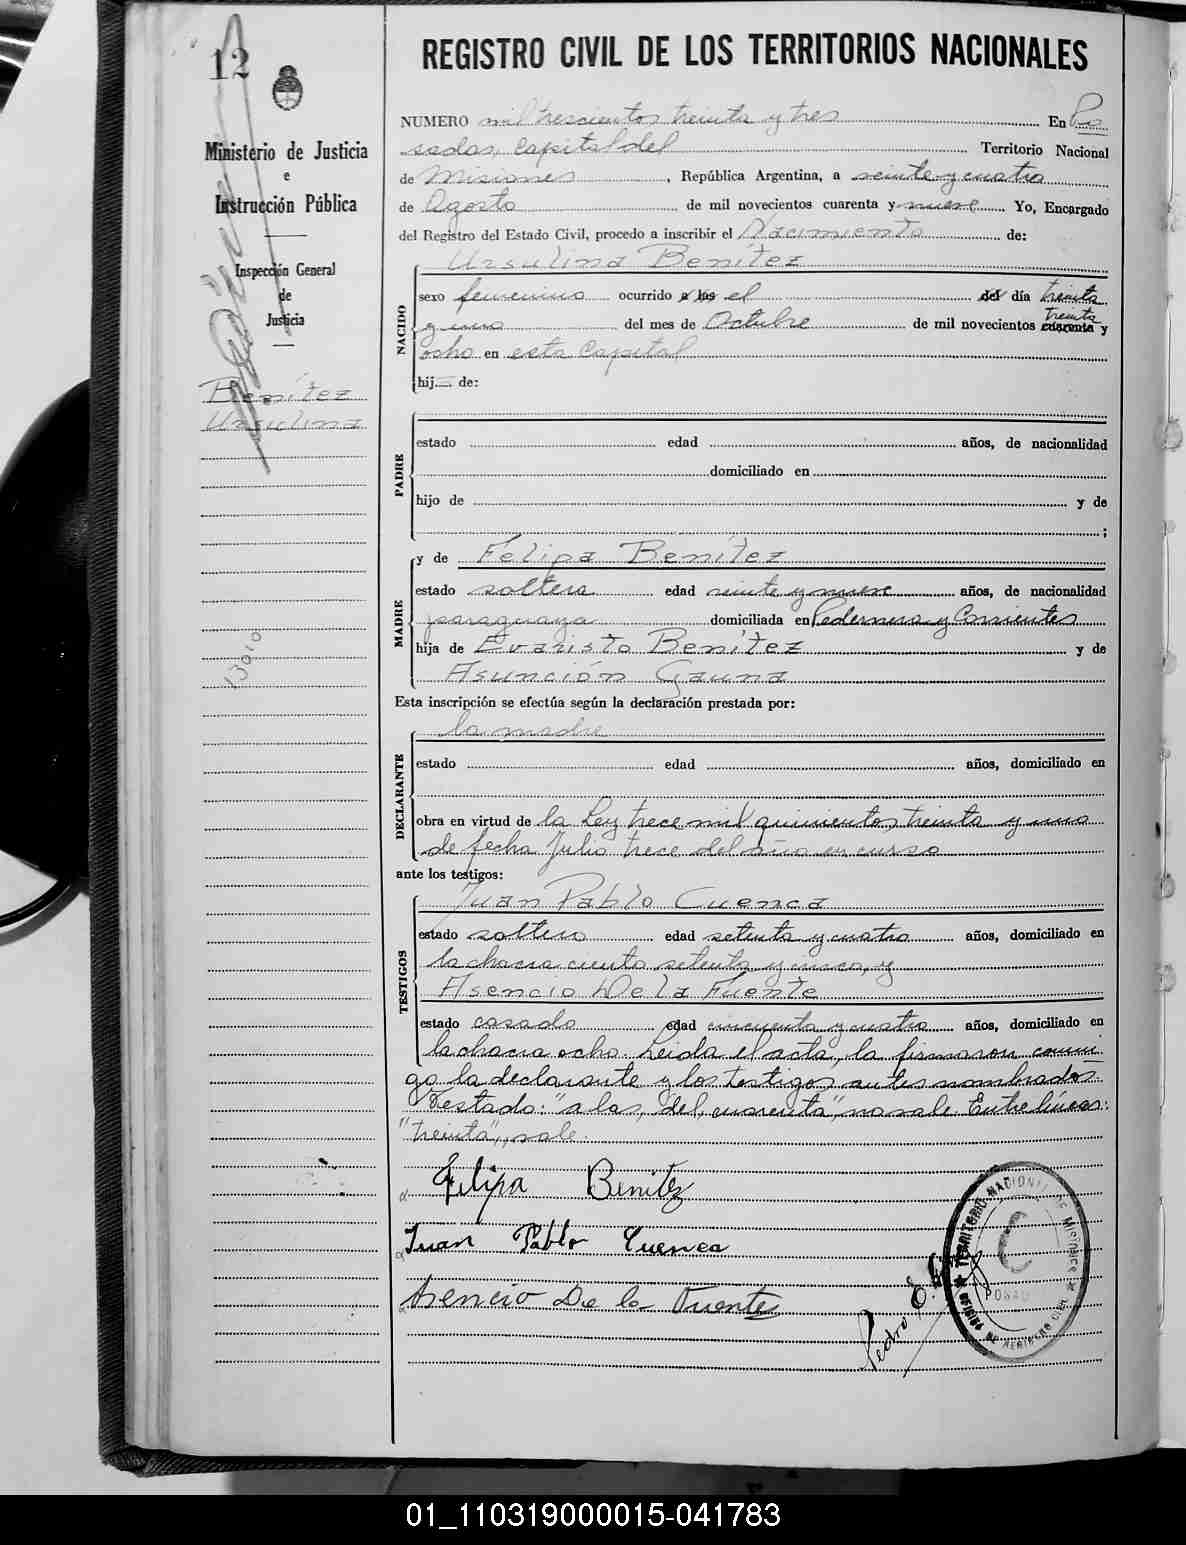 12
Ministerio de Justicia
e
Instrucción Pública
Inspección General
de
Justicia
Benítez
Ursulina
13010
REGISTRO CIVIL DE LOS TERRITORIOS NACIONALES
NUMERO mil trescientos treinta y tres En Po
sadas, capital del Territorio Nacional
de Misiones, República Argentina, a veinte y cuatro
de Agosto de mil novecientos cuarenta y nueve Yo, Encargado
del Registro del Estado Civil, procedo a inscribir el Nacimiento de:
NACIDO
Ursulina Benítez
sexo femenino ocurrido a las el del día treinta
treinta
y uno del mes de Octubre de mil novecientos cuarenta y
ocho en esta Capital
hij de:
PADRE
estado edad años, de nacionalidad
domiciliado en
hijo de y de
;
MADRE
y de Felipa Benítez
estado soltera edad veinte y nueve años, de nacionalidad
paraguaya domiciliada en Pedernera y Corrientes
hija de Evaristo Benítez y de
Asunción Gauna
Esta inscripción se efectúa según la declaración prestada por:
DECLARANTE
la madre
estado edad años, domiciliado en
obra en virtud de la Ley trece mil quinientos treinta y uno
de fecha Julio trece del año en curso
ante los testigos:
TESTIGOS
Juan Pablo Cuenca
estado soltero edad setenta y cuatro años, domiciliado en
la chacra ciento setenta y cinco, y
Asencio De la Fuente
estado casado edad cincuenta y cuatro años, domiciliado en
la chacra ocho. Leida el acta, la firmaron conmi
go la declarante y los testigos antes nombrados.
Testado: "a las, del, cuarenta", no vale. Entre líneas:
"treinta", vale.
Felipa Benitez
Juan Pablo Cuenca
Asencio De la Fuente
Pedro E.
TERRITORIO NACIONAL DE MISIONES
OFICINA DE REGISTRO CIVIL
POSADAS
01_110319000015-041783